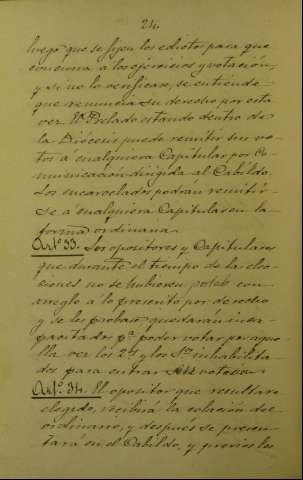 24.
luego que se fijen los edictos para que
concurra a los ejercicios y votación,
y si no lo verificare, se entiende
que renuncia su derecho por esta
vez. El Prelado estando dentro de
la Diócesis puede remitir su vo-
to a cualquiera Capitular por Co-
municación dirigida al Cabildo.
Los encarcelados podran remitir-
se á cualquiera Capitular en la
forma ordinaria.
Artº. 33. Los opositores y Capitulares
que durante el tiempo de la elec-
ciones no se hubieren con
arreglo a lo prescrito por derecho
y se les probare quedarán incapacitados pª. poder votar por aque-
lla vez los 2ºs y los 1ºs inhabilita
dos para entrar votacion.
Artº. 34. El opositor que resultare
elegido, recibirá la colación del
ordinario, y después se presen-
tará en el Cabildo, y previos los